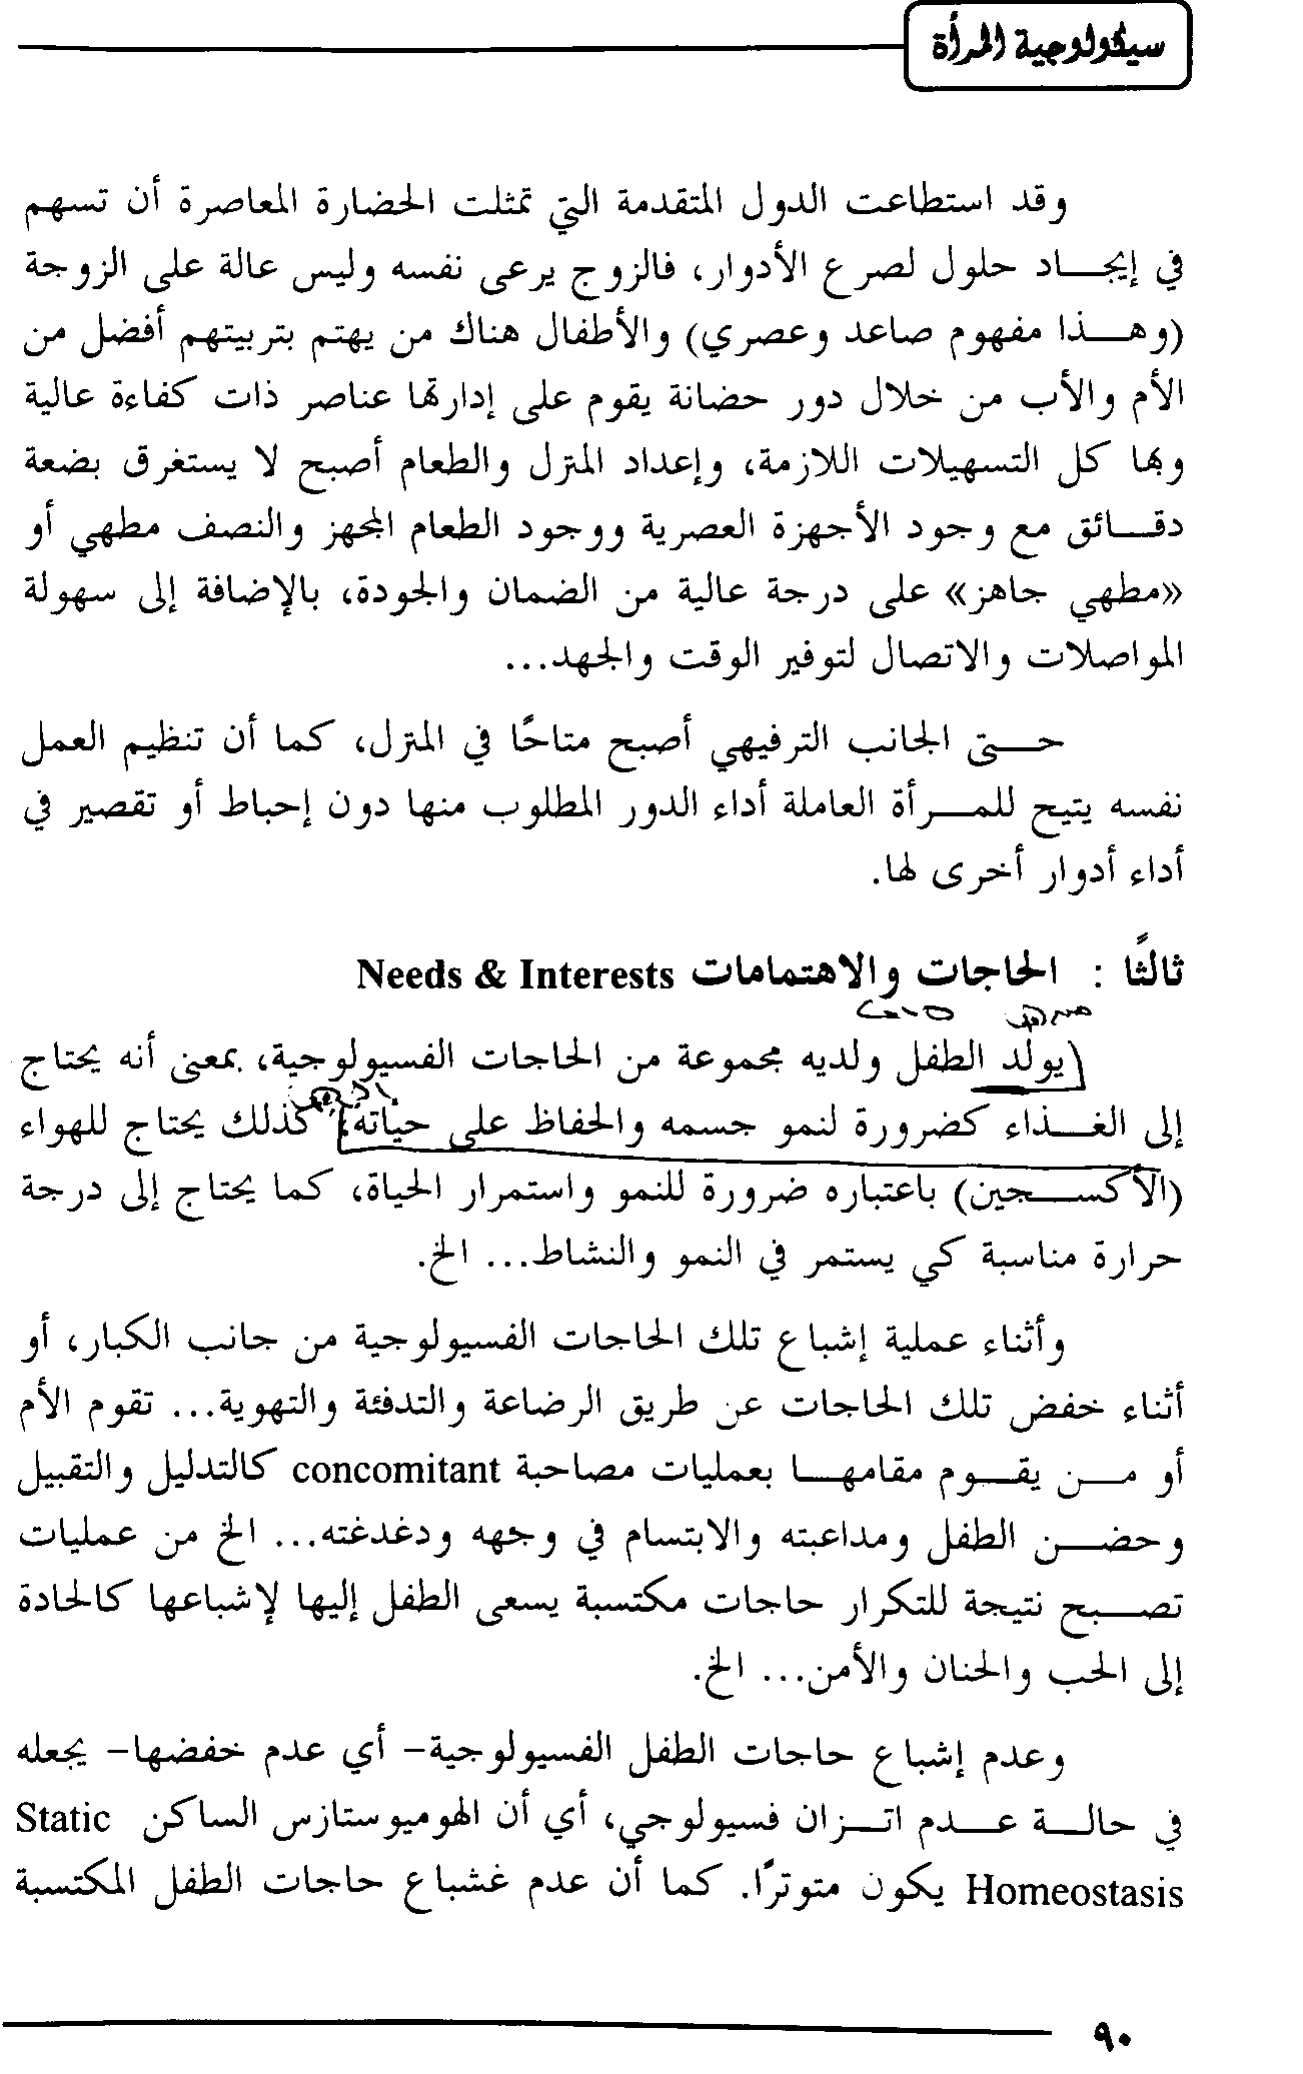 سيكولوجية المرأة
وقد استطاعت الدول المتقدمة التي تمثلت الحضارة المعاصرة أن تسهم
في إيجاد حلول لصرع الأدوار، فالزوج يرعى نفسه وليس عالة على الزوجة
(وهذا مفهوم صاعد وعصري) والأطفال هناك من يهتم بتربيتهم أفضل من
الأم والأب من خلال دور حضانة يقوم على إدارتها عناصر ذات كفاءة عالية
وبها كل التسهيلات اللازمة، وإعداد المنزل والطعام أصبح لا يستغرق بضعة
دقائق مع وجود الأجهزة العصرية ووجود الطعام المجهز والنصف مطهي أو
«مطهي جاهز» على درجة عالية من الضمان والجودة، بالإضافة إلى سهولة
المواصلات والاتصال لتوفير الوقت والجهد...
حتى الجانب الترفيهي أصبح متاحًا في المنزل، كما أن تنظيم العمل
نفسه يتيح للمرأة العاملة أداء الدور المطلوب منها دون إحباط أو تقصير في
أداء أدوار أخرى لها.
ثالثًا : الحاجات والاهتمامات Needs & Interests
يولد الطفل ولديه مجموعة من الحاجات الفسيولوجية، بمعنى أنه يحتاج
إلى الغذاء كضرورة لنمو جسمه والحفاظ على حياته، كذلك يحتاج للهواء
(الأكسجين) باعتباره ضرورة للنمو واستمرار الحياة، كما يحتاج إلى درجة
حرارة مناسبة كي يستمر في النمو والنشاط... الخ.
وأثناء عملية إشباع تلك الحاجات الفسيولوجية من جانب الكبار، أو
أثناء خفض تلك الحاجات عن طريق الرضاعة والتدفئة والتهوية... تقوم الأم
أو من يقوم مقامها بعمليات مصاحبة concomitant كالتدليل والتقبيل
وحضن الطفل ومداعبته والابتسام في وجهه ودغدغته... الخ من عمليات
تصبح نتيجة للتكرار حاجات مكتسبة يسعى الطفل إليها لإشباعها كالحادة
إلى الحب والحنان والأمن... الخ.
وعدم إشباع حاجات الطفل الفسيولوجية- أي عدم خفضها- يجعله
في حالة عدم اتزان فسيولوجي، أي أن الهوميوستازس الساكن Static
Homeostasis يكون متوترًا. كما أن عدم غشباع حاجات الطفل المكتسبة
٩٠